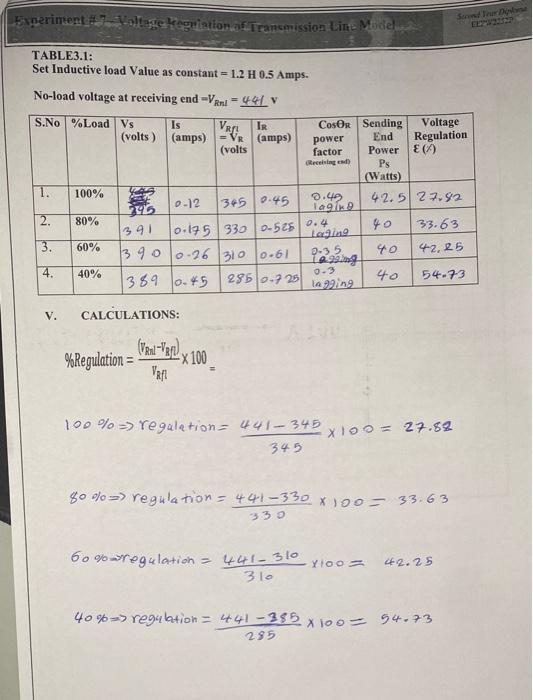 Experiment # 7- Voltage Regulation of Transmission Line Model
Second Year Diploma
TABLE3.1:
Set Inductive load Value as constant = 1.2 H 0.5 Amps.
No-load voltage at receiving end =VRnl = 441 v
S.No %Load Vs (volts) Is (amps) VRfl = VR (volts IR (amps) CosΘR power factor (Receiving end) Sending End Power Ps (Watts) Voltage Regulation Ɛ (%)
1. 100% 395 0.12 345 0.45 0.45 laging 42.5 27.82
2. 80% 391 0.175 330 0.525 0.4 lagging 40 33.63
3. 60% 390 0.26 310 0.61 0.35 lagging 40 42.25
4. 40% 389 0.45 285 0.725 0.3 lagging 40 54.73
V. CALCULATIONS:
%Regulation = (VRnl-VRfl) / VRfl x 100 =
100 % => regulation = 441 - 345 / 345 x 100 = 27.82
80 % => regulation = 441 - 330 / 330 x 100 = 33.63
60 % => regulation = 441 - 310 / 310 x 100 = 42.25
40 % => regulation = 441 - 285 / 285 x 100 = 54.73